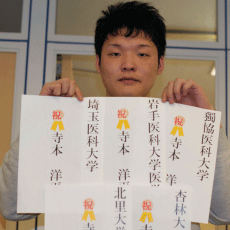 獨協医科大学
祝 寺本 洋
岩手医科大学医
祝 寺本 洋
埼玉医科大学
祝 寺本 洋
杏林大
祝
北里大学
祝